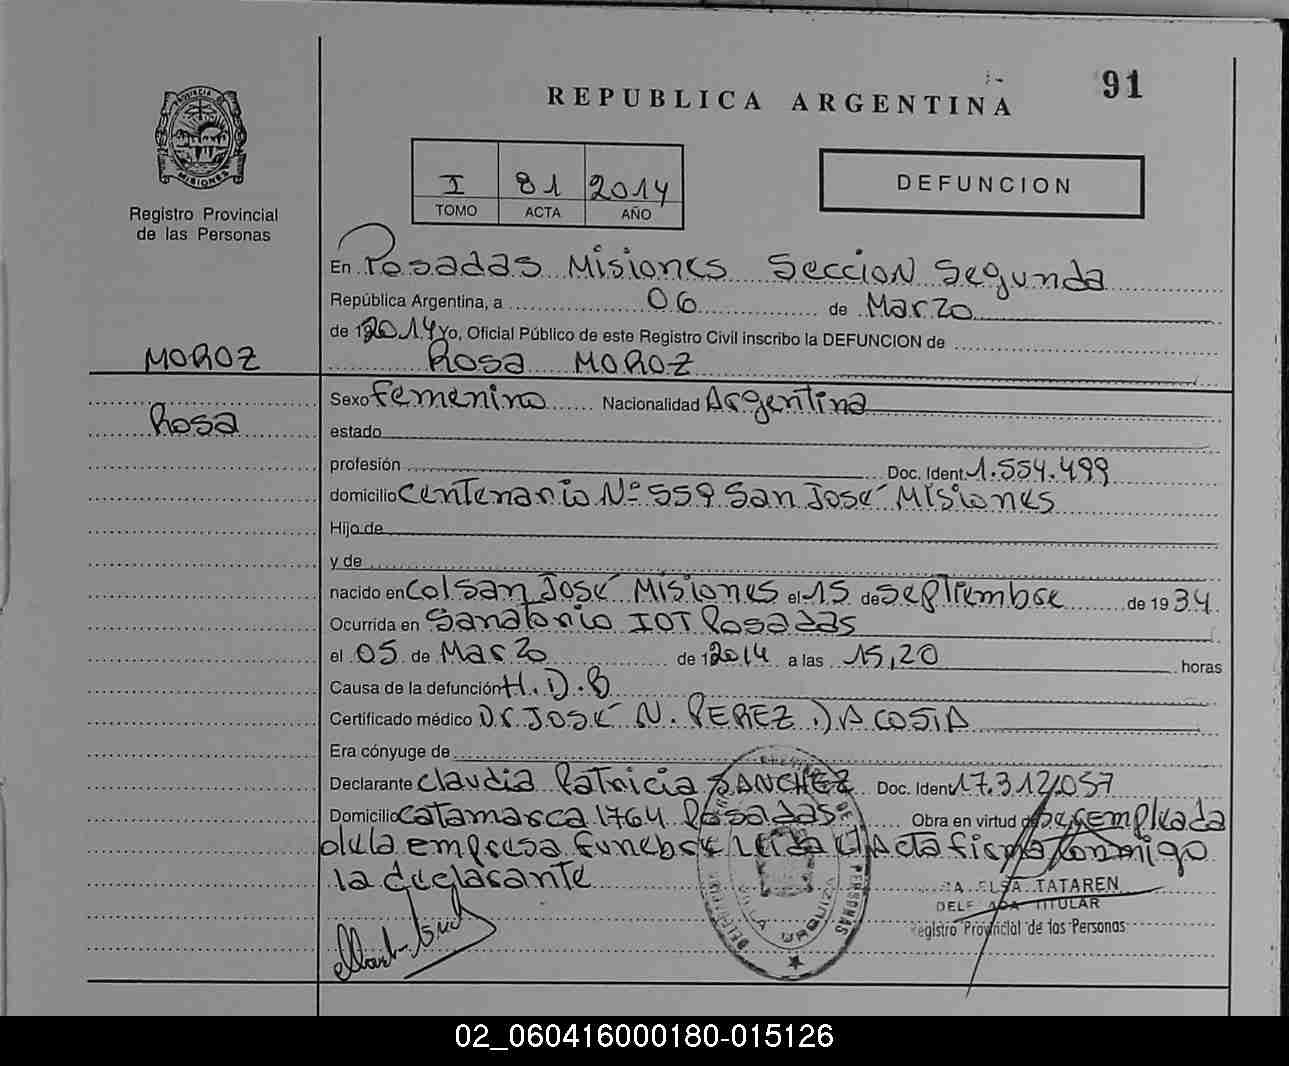 91
REPUBLICA ARGENTINA
PROVINCIA DE
MISIONES
Registro Provincial
de las Personas
I 81 2014
TOMO ACTA AÑO
DEFUNCION
En Posadas Misiones Seccion Segunda
República Argentina, a 06 de Marzo
de 12014 Yo, Oficial Público de este Registro Civil inscribo la DEFUNCION de
MOROZ
Rosa MOROZ
Rosa
Sexo Femenino Nacionalidad Argentina
estado
profesión Doc. Ident. 1.554.499
domicilio Centenario Nº 559 San José Misiones
Hijo de
y de
nacido en Col San José Misiones el 15 de septiembre de 1934
Ocurrida en Sanatorio IOT Posadas
el 05 de Marzo de 12014 a las 15,20 horas
Causa de la defunción H.D.B
Certificado médico Dr. José N. PEREZ DACOSTA
Era cónyuge de
Declarante Claudia Patricia SANCHEZ Doc. Ident 17.312.057
Domicilio Catamarca 1764 Posadas Obra en virtud de ser empleada
de la empresa funebre Leida el Acta firma conmigo
la declarante
ELSA TATAREN
TITULAR
Registro Provincial de las Personas
VILLA URQUIZA
PERSONAS
02_060416000180-015126